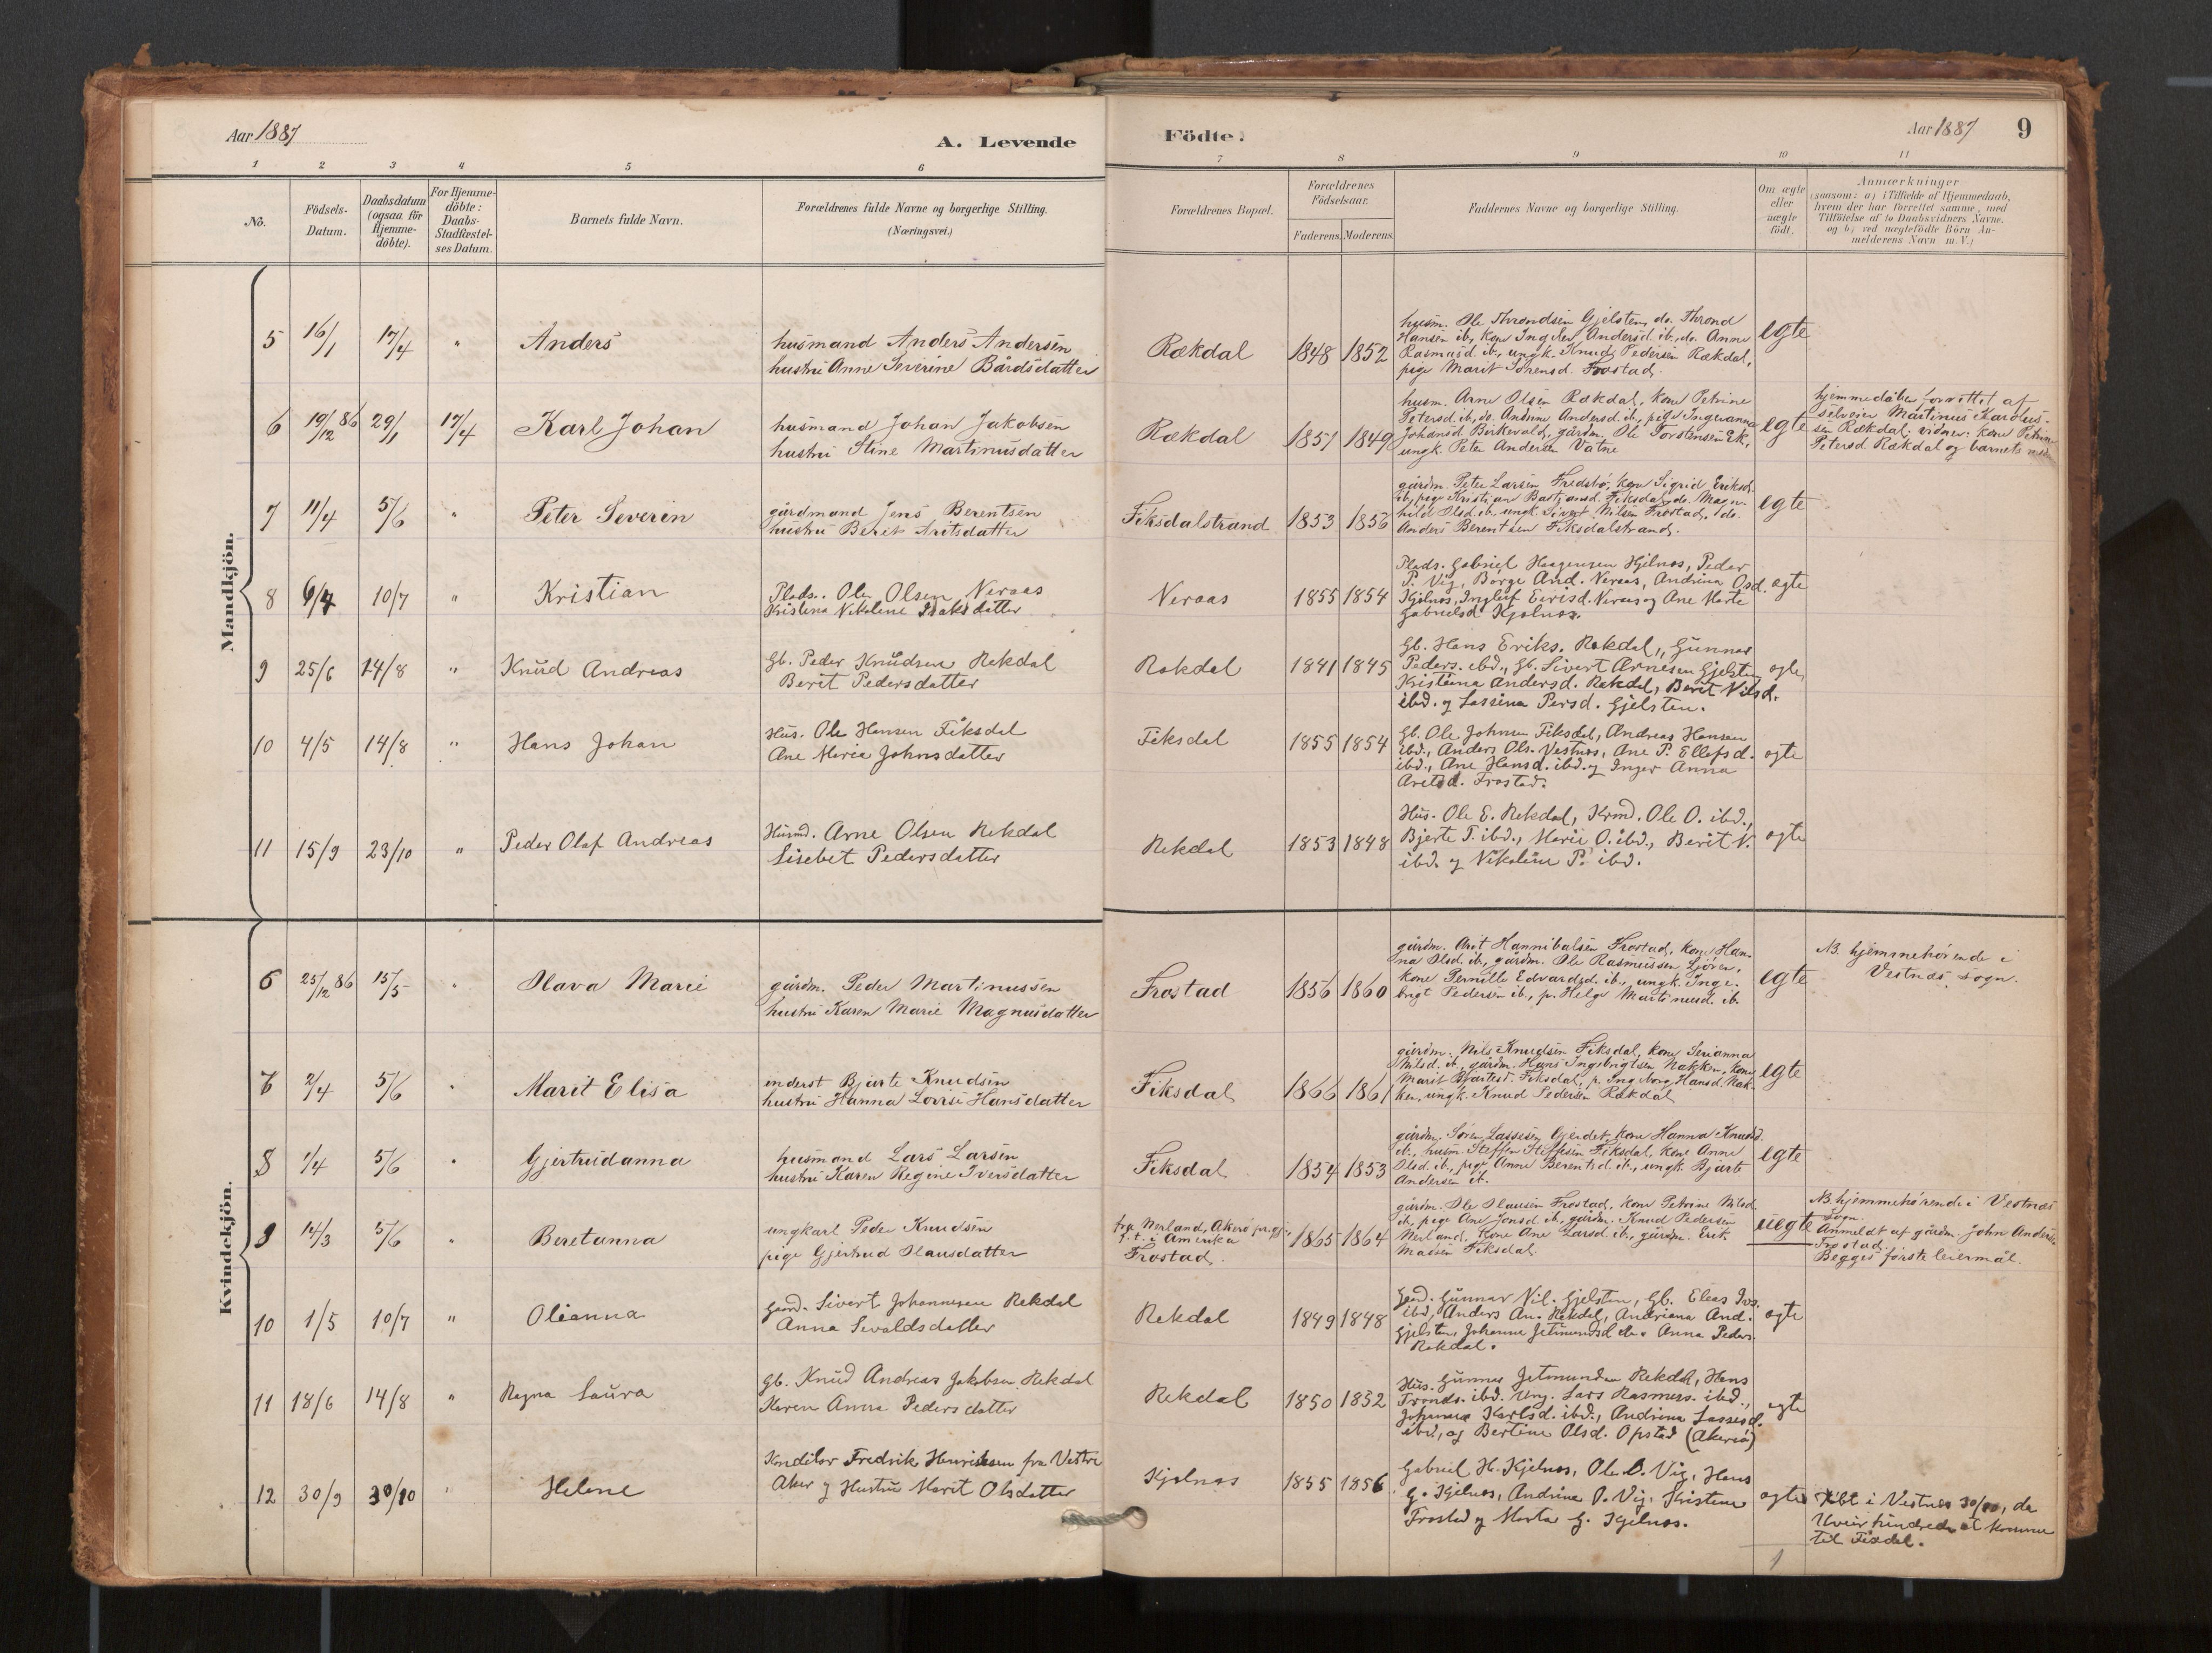 Aar 1887
A. Levende
Födte.
Aar 1887
9
1 2 3 4 5 6 7 8 9 10 11
No.
Födsels-
Datum.
Daabsdatum
(ogsaa for
Hjemme-
döbte).
For Hjemme-
döbte:
Daabs-
Stadfæstel-
ses Datum.
Barnets fulde Navn.
Forældrenes fulde Navne og borgerlige Stilling.
(Næringsvei.)
Forældrenes Bopæl.
Forældrenes
Födselsaar.
Faderens. Moderens.
Faddernes Navne og borgerlige Stilling.
Om ægte
eller
uægte
födt.
Anmærkninger
(saasom: a) i Tilfælde af Hjemmedaab,
hvem der har forrettet samme, med
Tilföielse af to Daabsvidners Navne,
og b) ved uægtefödte Börn An-
melderens Navn m.V.)
Mandkjön.
5 16/1 17/4 " Anders
husmand Anders Andersen
hustru Anne Severine Bårdsdatter
Rækdal 1848 1852
husm. Ole Throndsen Gjelsten, do. Thrond
Hansen ib, kone Ingelev Andersd. ib., do. Anne
Rasmusd. ib., ungk. Knud Pedersen Rækdal,
pige Marit Sörensd. Frostad.
egte
6 19/12 86 29/1 17/4 Karl Johan
husmand Johan Jakobsen
hustru Stine Martinusdatter
Rækdal 1857 1849
husm. Arne Olsen Rækdal, kone Petrine
Petersd. ib, do. Andrine Andersd. ib., pige Ingeranna
Johansd. Birkevold, gårdm. Ole Torstensen Ek,
ungk. Peter Andersen Vatne
egte
hjemmedåben forrettet af
selveier Martinus Karolus-
sen Rækdal. vidner: kone Petrine
Petersd. Rækdal og barnets
7 11/4 5/6 " Peter Severin
gårdmand Jens Berentsen
hustru Berit Aritsdatter
Fiksdalstrand 1853 1856
gårdm. Peter Larsen Fredsbö, kone Sigrid Eriksd.
ib, pige Kristiane Bastjansd. Fiksdal, do. Magn-
hild Olsd. ib., ungk. Sivert Nilsen Frostad, do.
Anders Berentsen Fiksdalstrand.
egte
8 6/4 10/7 " Kristian
Plads. Ole Olsen Neraas
Kristina Nikoline Isaksdatter
Neraas 1855 1854
Plads. Gabriel Haagensen Kjelnæs, Peder
P. Vig, Börge And. Neraas, Andrina Osd.
Kjelnæs, Inglef Eirisd. Neraas og Ane Marte
Gabrielsd. Kjelnæs.
ægte
9 25/6 14/8 " Knud Andreas
Gb. Peder Knudsen Rekdal
Berit Pedersdatter
Rekdal 1841 1845
Gb. Hans Eriks. Rekdal, Gunnar
Peders. ibd., Gb. Sivert Arnesen Gjelsten
Kristiana Andersd. Rekdal, Berit Nilsd.
ibd. og Lassina Persd. Gjelsten.
ægte
10 4/5 14/8 " Hans Johan
Hus. Ole Hansen Fiksdal
Ane Maria Johnsdatter
Fiksdal 1855 1854
Gb. Ole Johnsen Fiksdal, Andreas Hansen
ibd., Anders Ols. Vestnes, Ane P. Ellefsd.
ibd., Ane Hansd. ibd. og Inger Anna
Aretsd. Frostad.
ægte
11 15/9 23/10 " Peder Olaf Andreas
Husmd. Arne Olsen Rekdal
Lisebet Pedersdatter
Rekdal 1853 1848
Hus. Ole E. Rekdal, Krmd. Ole O. ibd.,
Bjerte T. ibd., Marie O. ibd., Berit N.
ibd. og Nikoline P. ibd.
ægte
Kvindekjön.
6 25/12 86 15/5 " Olava Marie
gårdm. Peder Martinussen
hustru Karen Marie Magnusdatter
Frostad 1856 1860
gårdm. Arit Hannibalsen Frostad, kone Han-
na Olsd. ib., gårdm. Ole Rasmussen Gjören,
kone Pernille Edvardsd. ib., ungk. Inge-
brigt Pedersen ib., p. Helge Martinusd. ib.
egte
NB. hjemmehörende i
Vestnæs sogn.
7 2/4 5/6 " Marit Elisa
inderst Bjarte Knudsen
hustru Hanna Lovise Hansdatter
Fiksdal 1866 1861
gårdm. Nils Knudsen Fiksdal, kone Serianna
Nilsd. ib., gårdm. Hans Ingebrigtsen Nakken, kone
Marit Bjartesd. Fiksdal, p. Ingeborg Hansd. Nak-
ken, ungk. Knud Pedersen Rækdal
egte
8 1/4 5/6 " Gjertrudanna
husmand Lars Larsen
hustru Karen Regine Iversdatter
Fiksdal 1854 1853
gårdm. Sören Lassesen Gjerdet, kone Hanna Knudsd.
ib., husm. Steffen Steffensen Fiksdal, kone Anne
Olsd. ib., pige Anne Berentsd. ib., ungk. Bjarte
Andersen ib.
egte
9 14/3 5/6 Beretanna
ungkarl Peder Knudsen
pige Gjertrud Olausdatter
fra Nerland, Akerö prgj.
p.t. i Amerika
Frostad. 1865 1864
gårdm. Ole Olausen Frostad, kone Petrine Nilsd.
ib, pige Ane Jonsd. ib., gårdm. Knud Pedersen
Nerland, kone Ane Larsd. ib., gårdm. Erik
Massen Fiksdal.
uegte
NB. hjemmehörende i Vestnæs
sogn.
Anmeldt af gårdm. John Andersen
Frostad.
Begges förste leiermål.
10 1/5 10/7 " Olianna
Gaard. Sivert Johannesen Rekdal
Anna Sevaldsdatter
Rekdal 1849 1848
Gaard. Gunnar Nil. Gjelsten, Gb. Eleas Ivs.
ibd, Anders An. Rekdal, Andriana And.
Gjelsten, Johanne Jetmundsd. do. Anna Peders.
Rekdal.
ægte
11 18/6 14/8 " Ragna Laura
Gb. Knud Andreas Jakobsen Rekdal
Karen Anna Pedersdatter
Rekdal 1850 1852
Hus. Gunnar Jetmundsen Rekdal, Hans
Tronds. ibd. Ung. Lars Rasmuss. ibd.,
Johanna Karlsd. ibd., Andrina Lassesd.
ibd., og Bertine Olsd. Opstad (Akerö)
ægte
12 30/9 30/10 " Helene
Konditor Fredrik Henriksen fra Vestre
Aker og Hustru Marit Olsdatter
Kjelnæs 1855 1856
Gabriel H. Kjelnæs, Ole O. Vig, Hans
G. Kjelnæs, Andrine P. Vig, Kristine
Frostad og Marta G. Kjelnæs.
ægte
Döbt i Vestnes 30/10, da
Uveir hindrede at komme
til Fixdal.
1